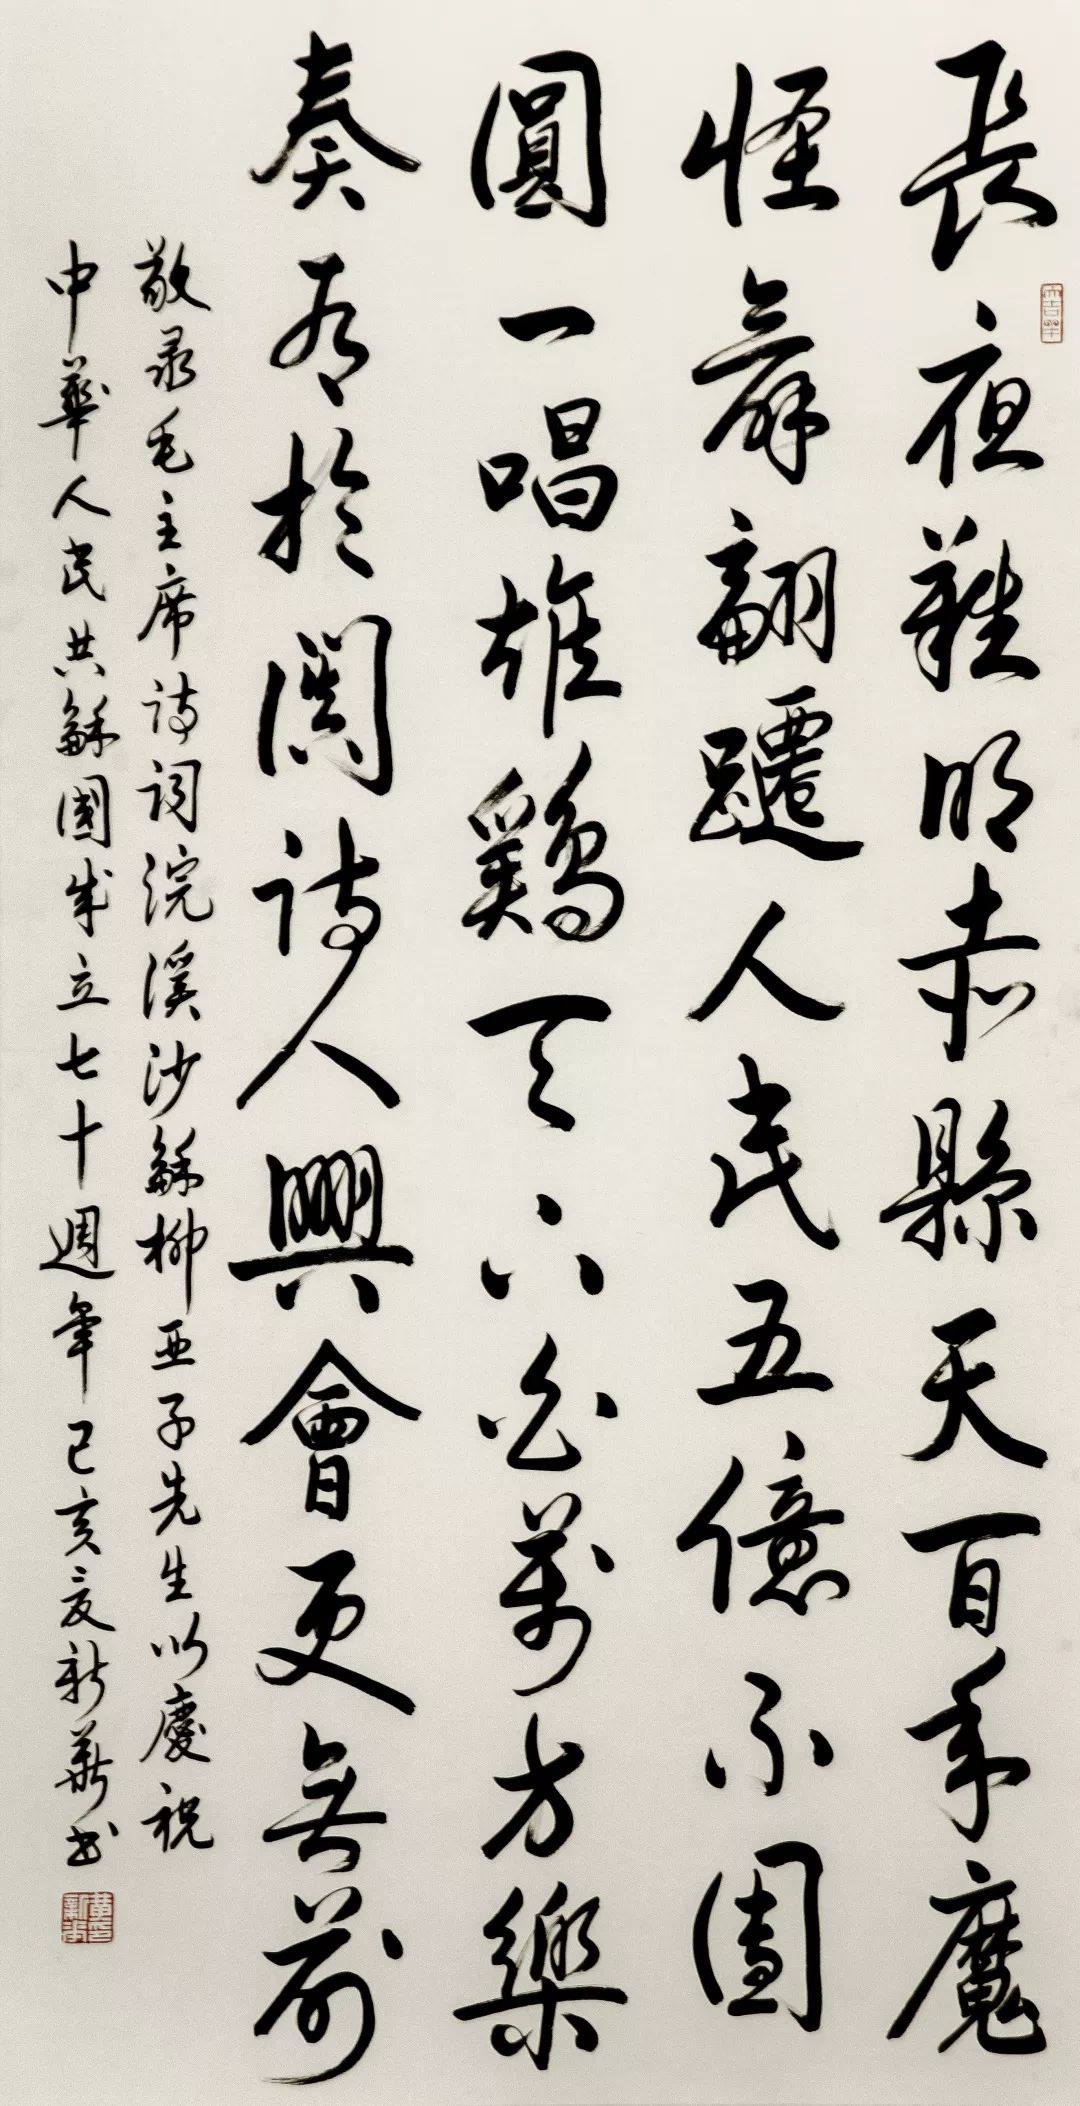 長夜難明赤縣天百年魔
怪舞翩躚人民五億不團
圓一唱雄鷄天下白萬方樂
奏有於闐詩人興會更無前
敬录毛主席诗词浣溪沙龢柳亚子先生以慶祝
中華人民共龢國成立七十週年己亥夏新華书
大吉羊